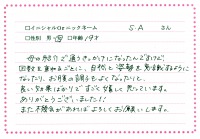 □イニシャルorニックネーム S.A さん
□性別 男・女 □年齢 19才
母の紹介で通うきっかけになったんですけど、
回数を重ねるごとに、自然と姿勢を意識するように
なったり、お腹の調子もよくなったりと、
良い効果ばかりですごく嬉しく思っています。
ありがとうございました!!
また機会があればよろしくお願いします。